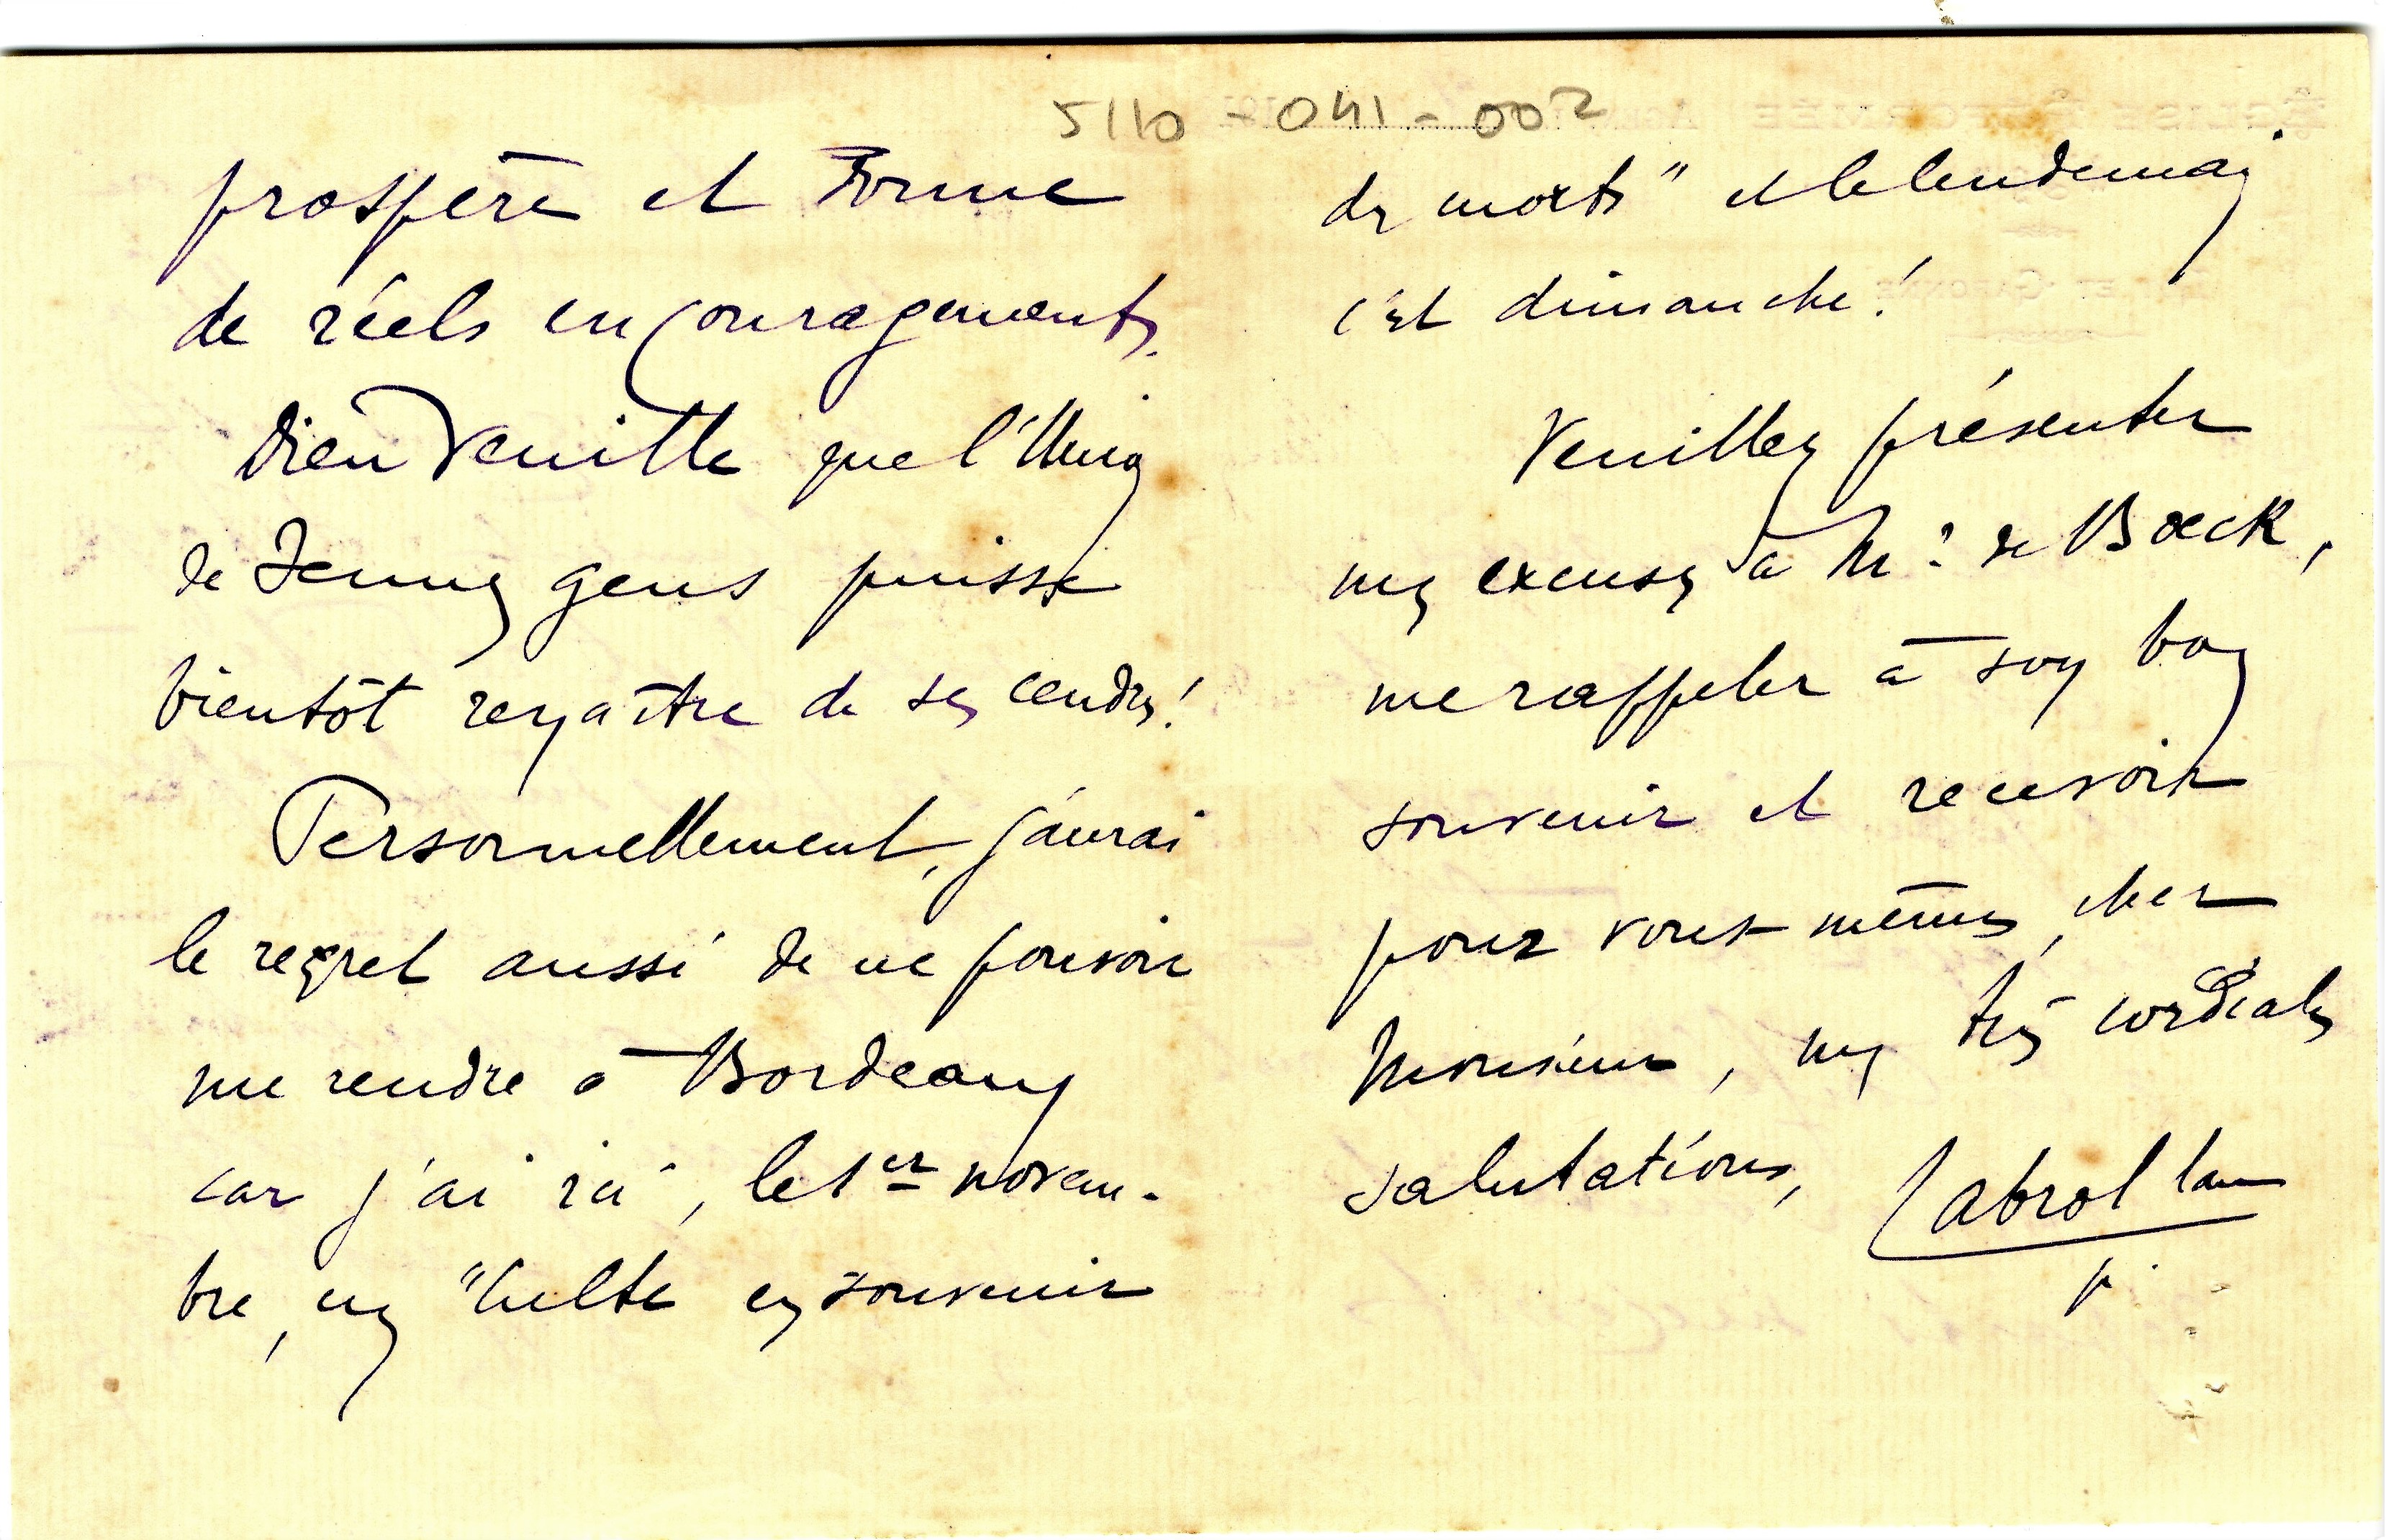 5110-041-002
prospère et donne
de réels encouragements.
Dieu veuille que l'Union
de Jeunes gens puisse
bientôt renaître de ses cendres!
Personnellement, j'aurai
le regret aussi de ne pouvoir
me rendre à Bordeaux
car j'ai ici, le 1er novem-
bre, un "Culte en souvenir
des morts" et le lendemain
c'est dimanche!
Veuillez présenter
mes excuses à Mr. de Boeck,
me rappeler à son bon
souvenir et recevoir
pour vous-même, cher
Monsieur, mes très cordiales
salutations,
p.